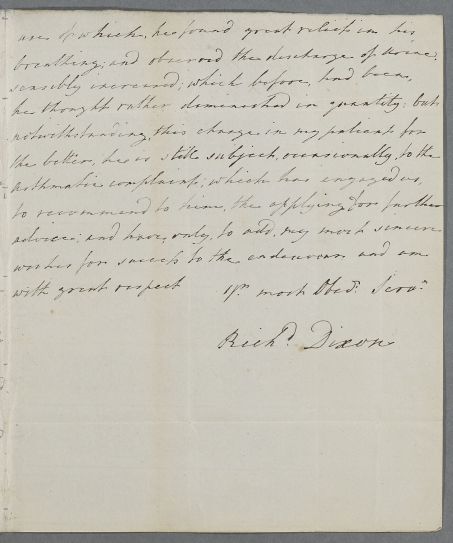 use of which, he found great relief in his
breathing; and observed the discharge of urine,
sensibly increased; which before, had been,
he thought rather diminished in quantity: but
notwithstanding, this change in my patient for
the better, he is still subject, occasionally, to the
asthmatic complaint; which has engaged us,
to recommend to him, the applying for further
advice; and have, only, to add, my most sincere
wishes for success to the endeavour and am
with great respect Yr. most Obed. Serv.
Rich.d Dixon